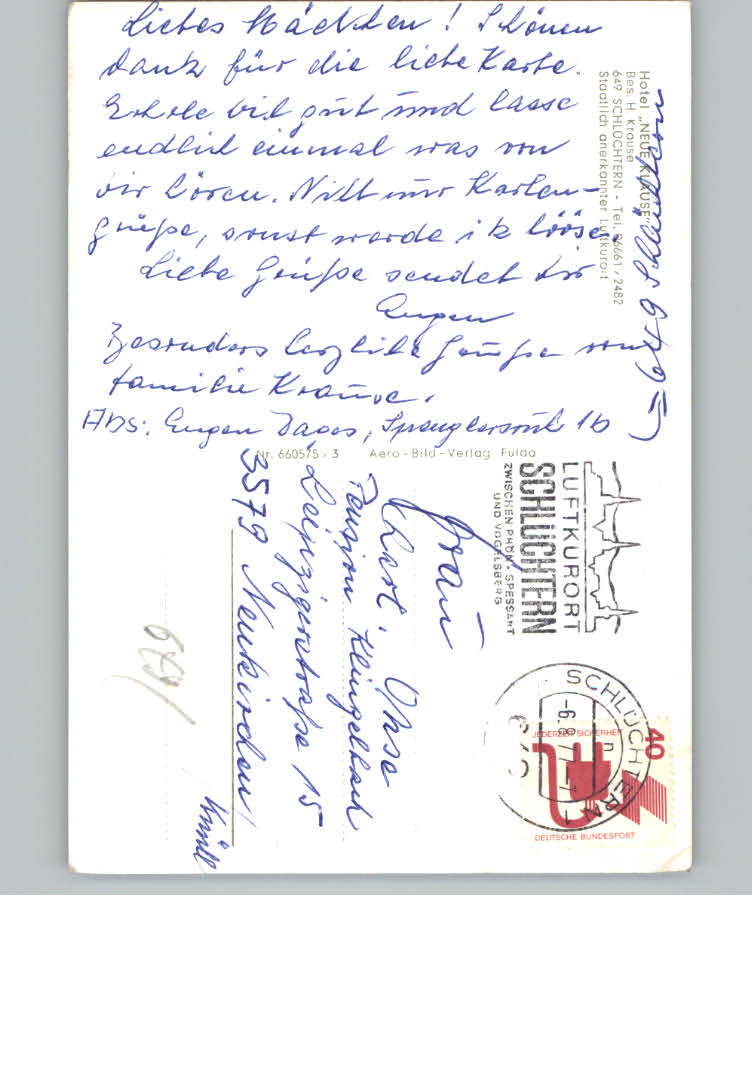 Liebes Mädchen! Schönen
Dank für die liebe Karte.
Erhole dich gut und lasse
endlich einmal was von
dir hören. Nicht nur Karten-
grüße, sonst werde ich böse.
Liebe Grüße sendet dir
Eugen
Besonders herzliche Grüße von
Familie Krause.
Abs: Eugen 1b
649 Schlüchtern
Hotel „NEUE KLAUSE"
Bes. H. Krause
649 SCHLÜCHTERN - Tel. 06661/2482
Staatlich anerkannter Luftkurort
Nr. 660575/3 Aero-Bild-Verlag Fulda
LUFTKURORT
SCHLÜCHTERN
ZWISCHEN RHÖN-SPESSART
UND VOGELSBERG
SCHLÜCHTERN 1
n
JEDERZEIT SICHERHEIT
40
DEUTSCHE BUNDESPOST
Frau
Ohse
Pension Klingelbach
Leipzigerstraße 15
3579 Neukirchen/
Knüll